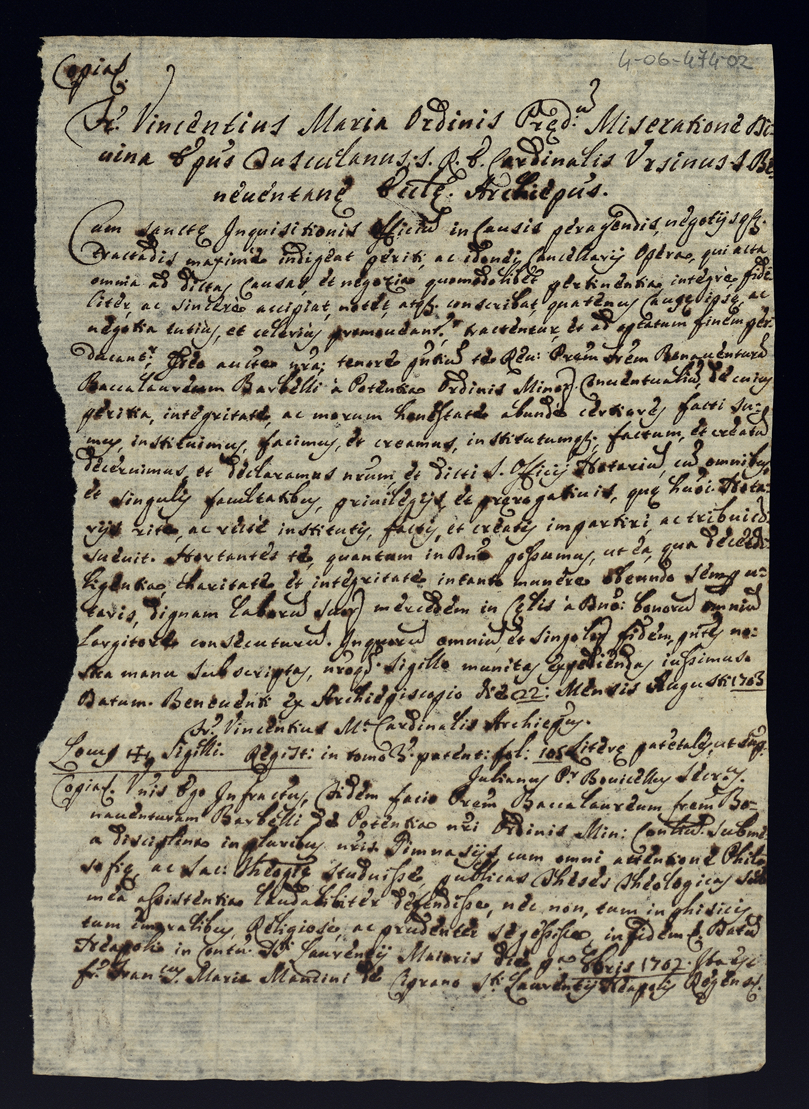 4-06-474-02
Copia.
Fr. Vincentius Maria Ordinis Pręd:m Miseratione Di-
uina Epũs Tusculanus S. R. E. Cardinalis Vrsinus S. Be
neuentanę Eccłę. Archiepus.
Cum Sanctę Inquisitionis officiũ in Causis peragendis, negotijsq;
tractãdis maximè indigeat periti, ac idonei Cancellarij Opera, qui acta
omnia ad dictas Causas, et negotia quomodolibet pertinentia, integrè, fide
liter, ac sincerè accipiat, notet, atq; conscribat, quatenus Causę ipsę, ac
negotia tutius, et celerius promoueant.r, tractentur, et ad optatum finem per
ducant.r, Ideo aucte nrã; tenore pñtiũ te Reu: Prem Frem Bonauenturã
Baccalaureum Barbelli à Potentia Ordinis Minor Conuentualiũ, de cuius
peritia, integritate ac morum honestate abundè certiores facti su-
mus, instituimus, facimus, et creamus, institutumq;, factum, et creatũ
decernimus, et declaramus nrum, et dicti S. Officij Notariũ, cũ omnibus
et singulis facultatibus, priuilegijs, et prerogatiuis, quę huõi Nota-
rijs ritè, ac rectè institutis, factis, et creatis impartiri, ac tribui
sueuit. Hortantes te, quantum in Dnõ possumus, ut ea, qua decet di-
ligentia, charitate et integritate in tanto munere obeundo semp u-
taris, dignam laborũ suor mercedem in Cęlis à Dnõ: bonorũ omniũ
largitore consecuturũ. In quorũ omniũ et singulor fidem, pñtes no-
stra manu subscriptas, nroq; sigillo munitas expediendas iussimus
Datum Beneuenti ex Archiepiscopio die 22: Mensis Augusti 1703
Fr. Vincentius M.a Cardinalis Archiepus.
Locus + Sigilli. Regist: in tomo 3. patent: fol: 105 Literę patetales, ut sup.
Julianus Pr. Bouicellus Secrs.
Copia. Vnis Ego Infractus, fidem facio Prem Baccalaureum frem Bo-
nauenturam Barbelli de Potentia nri Ordinis Min: Conũt. sub me
a disciplina in pluribus nris Gimnasijs cum omni attentione Philo
sofię, ac Sac: Theogię studuisse publicas Theses Theologicas sub
mea assistentia laudabiliter defendisse, nec non, tum in phisicis
tum moralibus, Religiosè, ac prudenter se gessisse, in fidem & Datũ
Neapoli in Contu: Sti Laurentij Maioris die pa 1702.
fr. Francus Maria Mancini de Cigrano Sti Laurentij Neapolis Regens.